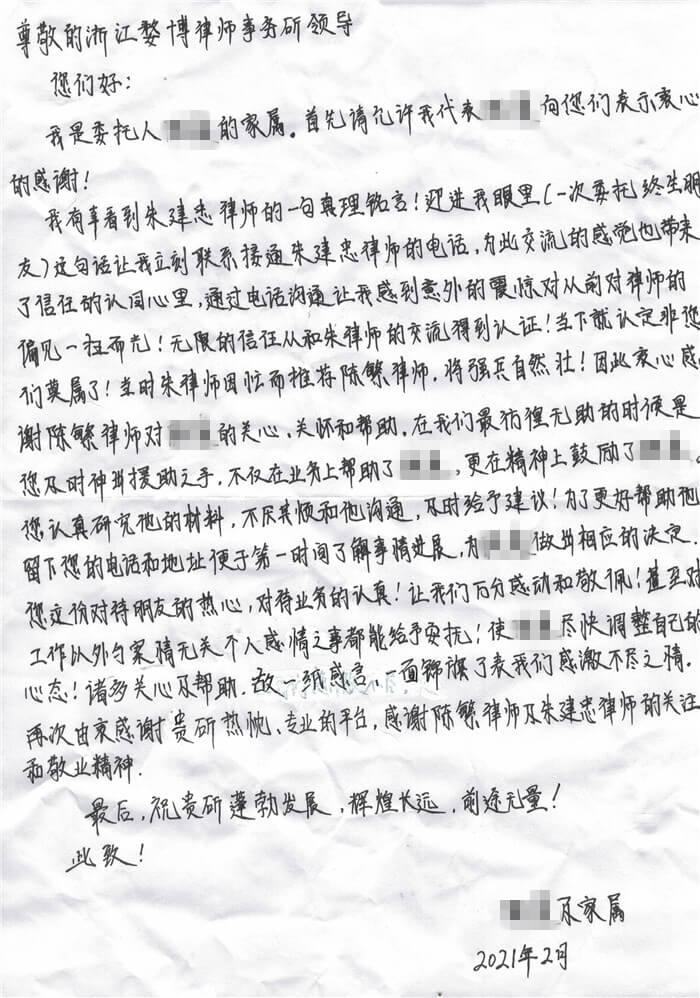 尊敬的浙江婺博律师事务所领导
您们好:
我是委托人的家属。首先请允许我代表向您们表示衷心
的感谢!
我有幸看到朱建忠律师的一句真理铭言!迎进我眼里(一次委托终生朋
友)这句话让我立刻联系接通朱建忠律师的电话,为此交流的感觉也带来
了信任的认同心里,通过电话沟通让我感到意外的震惊对从前对律师的
偏见一扫而光!无限的信任从和朱律师的交流得到认证!当下就认定非您
们莫属了!当时朱律师因忙而推荐陈繁律师.将强兵自然壮!因此衷心感
谢陈繁律师对的关心、关怀和帮助.在我们最彷徨无助的时候是
您及时神出援助之手,不仅在业务上帮助了,更在精神上鼓励了.
您认真研究他的材料,不厌其烦和他沟通,及时给予建议!为了更好帮助他
留下您的电话和地址便于第一时间了解事情进展,为做出相应的决定.
您这份对待朋友的热心,对待业务的认真!让我们万分感动和敬佩!甚至对
工作以外与案情无关个人感情之事都能给予安抚!使尽快调整自己的
心态!诸多关心及帮助.故一纸感言,一面锦旗了表我们感激不尽之情.
再次由衷感谢贵所热忱、专业的平台,感谢陈繁律师及朱建忠律师的关注
和敬业精神.
最后,祝贵所蓬勃发展,辉煌长远,前途无量!
此致!
及家属
2021年2月